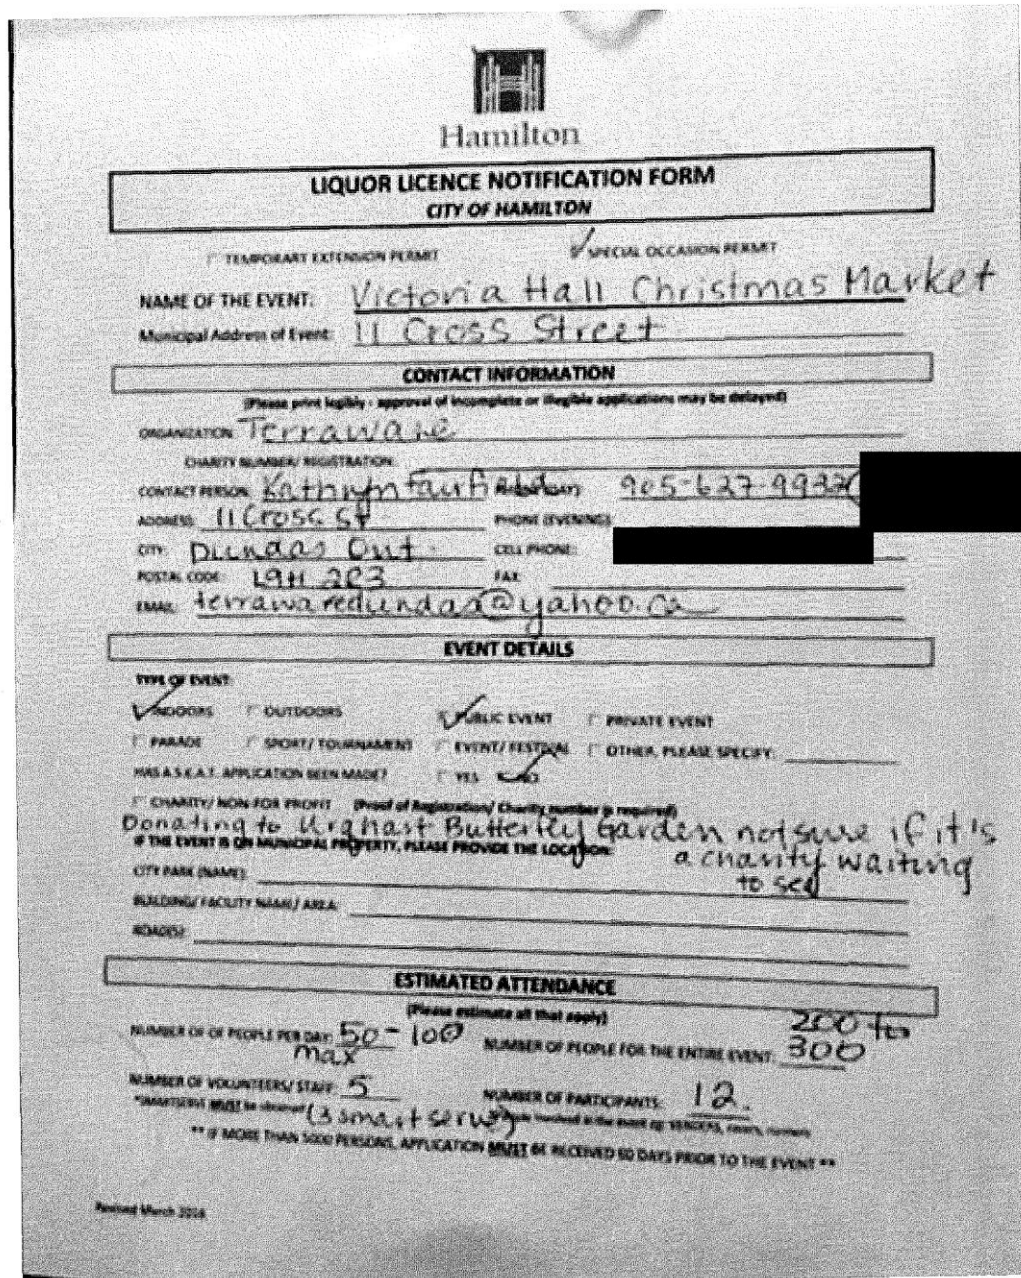 Hamilton
LIQUOR LICENCE NOTIFICATION FORM
CITY OF HAMILTON
TEMPORARY EXTENSION PERMIT SPECIAL OCCASION PERMIT
NAME OF THE EVENT: Victoria Hall Christmas Market
Municipal Address of Event: 11 Cross Street
CONTACT INFORMATION
(Please print legibly - approval of incomplete or illegible applications may be delayed)
ORGANIZATION: Terraware
CHARITY NUMBER/ REGISTRATION:
CONTACT PERSON: Kathryn Fairfield 905-627-9937
ADDRESS: 11 Cross St PHONE (EVENING):
CITY: Dundas Ont. CELL PHONE:
POSTAL CODE: L9H 2R3 FAX:
EMAIL: terrawaredundas@yahoo.ca
EVENT DETAILS
TYPE OF EVENT:
INDOORS OUTDOORS PUBLIC EVENT PRIVATE EVENT
PARADE SPORT/ TOURNAMENT EVENT/ FESTIVAL OTHER, PLEASE SPECIFY:
HAS A S.E.A.T. APPLICATION BEEN MADE? YES NO
CHARITY/ NON-FOR PROFIT (Proof of Registration/ Charity number is required)
Donating to Urghast Butterfley Garden not sure if it's
IF THE EVENT IS ON MUNICIPAL PROPERTY, PLEASE PROVIDE THE LOCATION: a charity waiting
CITY PARK (NAME): to see
BUILDING/ FACILITY NAME/ AREA:
ROAD(S):
ESTIMATED ATTENDANCE
(Please estimate all that apply)
NUMBER OF OF PEOPLE PER DAY: 50 - 100 NUMBER OF PEOPLE FOR THE ENTIRE EVENT: 200 to
max 300
NUMBER OF VOLUNTEERS/ STAFF: 5 NUMBER OF PARTICIPANTS: 12.
*SMARTSERVE MUST be obtained (3 smart serve) involved in the event eg: VENDERS,
** IF MORE THAN 5000 PERSONS, APPLICATION MUST BE RECEIVED 60 DAYS PRIOR TO THE EVENT **
Revised March 2016